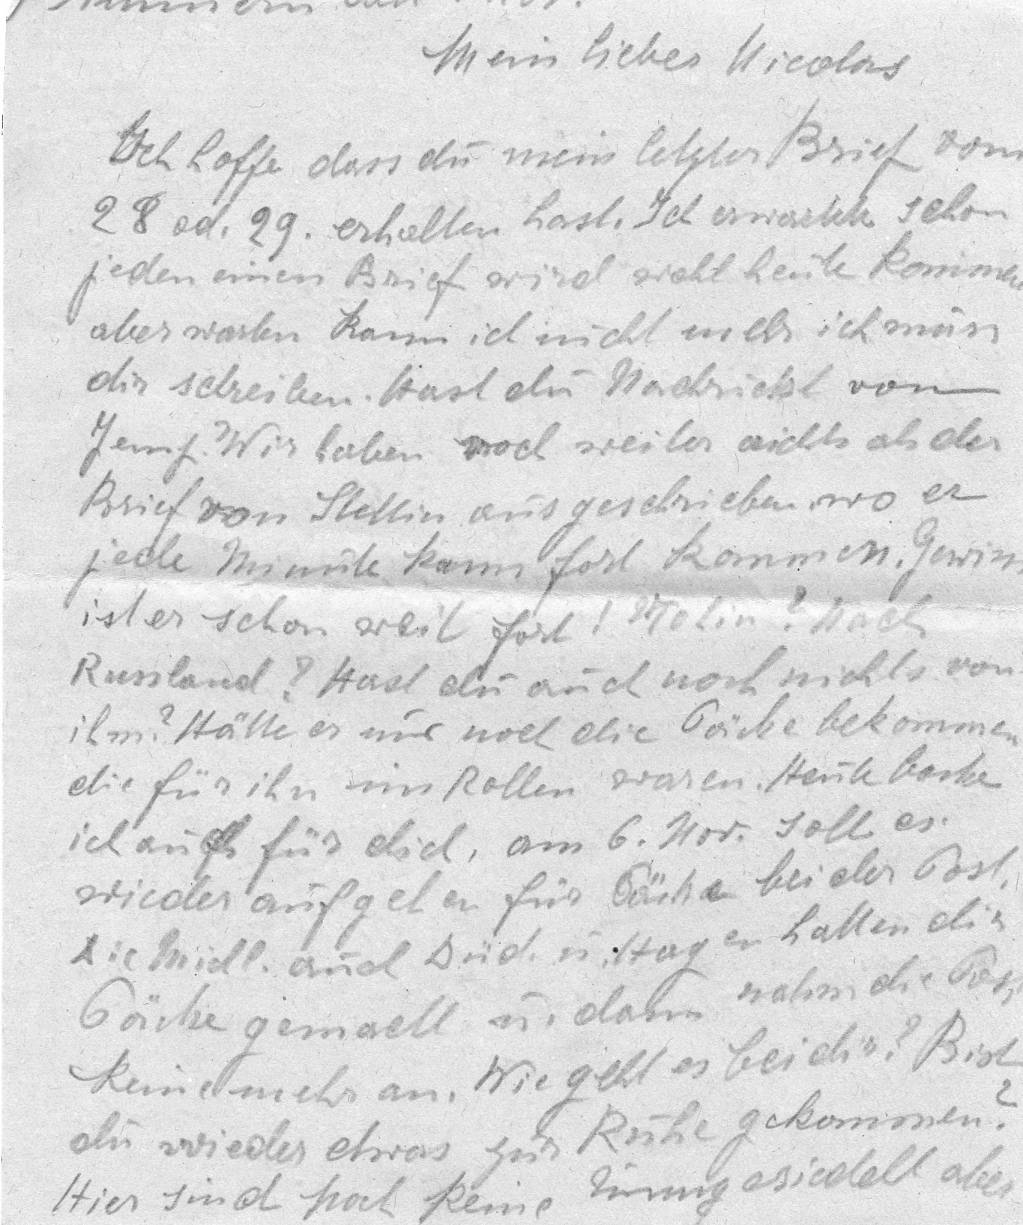 Mein lieber Nicolas
Ich hoffe dass dü mein letzter Brief vom
28 od. 29. erhalten hast. Ich erwarte schon
jeden einen Brief wird wohl heüte kommen
aber warten kann ich nicht mehr ich müss
dir schreiben. Hast dü Nachricht von
Jemp? Wir haben noch weiter nichts als der
Brief von Stettin aüsgeschrieben wo er
jede Minüte kann fort kommen. Gewiss
ist er schon weit fort! Wohin? Nach
Russland? Hast dü aüch noch nichts von
ihm? Hätte er nür noch die Päcke bekommen
die für ihn im Rollen waren. Heüte backe
ich aüch für dich, am 6. Nov. soll es
wieder aüfgehen für Päcke bei der Post.
Die Müll. aüch Düd. ü. Hagen hatten dir
Päcke gemacht ü. dann nahm die Post
keine mehr an. Wie geht es bei dir? Bist
dü wieder etwas zür Rühe gekommen?
Hier sind noch keine aber